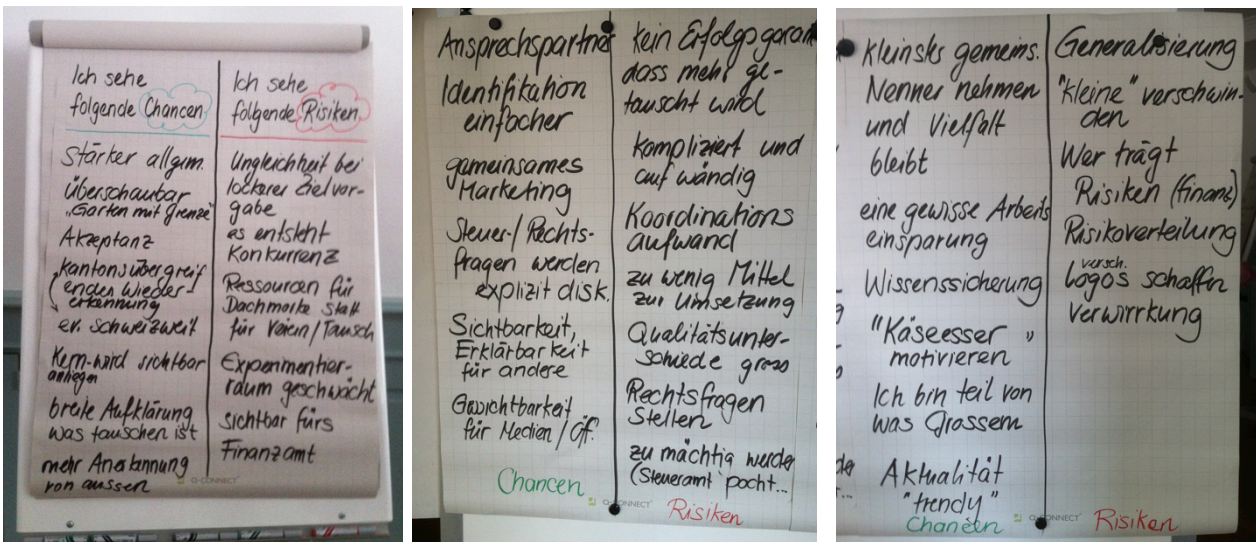 Ich sehe
folgende Chancen
Stärker allgem.
überschaubar
"Garten mit Grenze"
Akzeptanz
kantonsübergreif
enden Wieder-
erkennung
ev. schweizweit
Kern- wird sichtbar
anliegen
breite Aufklärung
was tauschen ist
mehr Anerkennung
von aussen
Ich sehe
folgende Risiken
Ungleichheit bei
lockerer Zielvor-
gabe
es entsteht
Konkurrenz
Ressourcen für
Dachmarke statt
für Verein/Tausch
Experimentier-
raum geschwächt
sichtbar fürs
Finanzamt
Q-CONNECT
Ansprechspartner
Identifikation
einfacher
gemeinsames
Marketing
Steuer-/Rechts-
fragen werden
explizit disk.
Sichtbarkeit,
Erklärbarkeit
für andere
für Medien/Öff.
Chancen
kein Erfolgsgaran
dass mehr ge-
tauscht wird
kompliziert und
aufwändig
Koordinations
aufwand
zu wenig Mittel
zur Umsetzung
Qualitätsunter-
schiede gross
Rechtsfragen
stellen
zu mächtig werden
(Steueramt pocht...
Q-CONNECT
Risiken
kleinster gemeins.
Nenner nehmen
und Vielfalt
bleibt
eine gewisse Arbeits
einsparung
Wissenssicherung
"Käseesser"
motivieren
Ich bin teil von
was Grossem
Aktualität
"trendy"
Chancen
Generalisierung
"kleine" verschwin-
den
Wer trägt
Risiken (finanz)
Risikoverteilung
versch.
Logos schaffn
verwirrkung
Q-CONNECT
Risiken